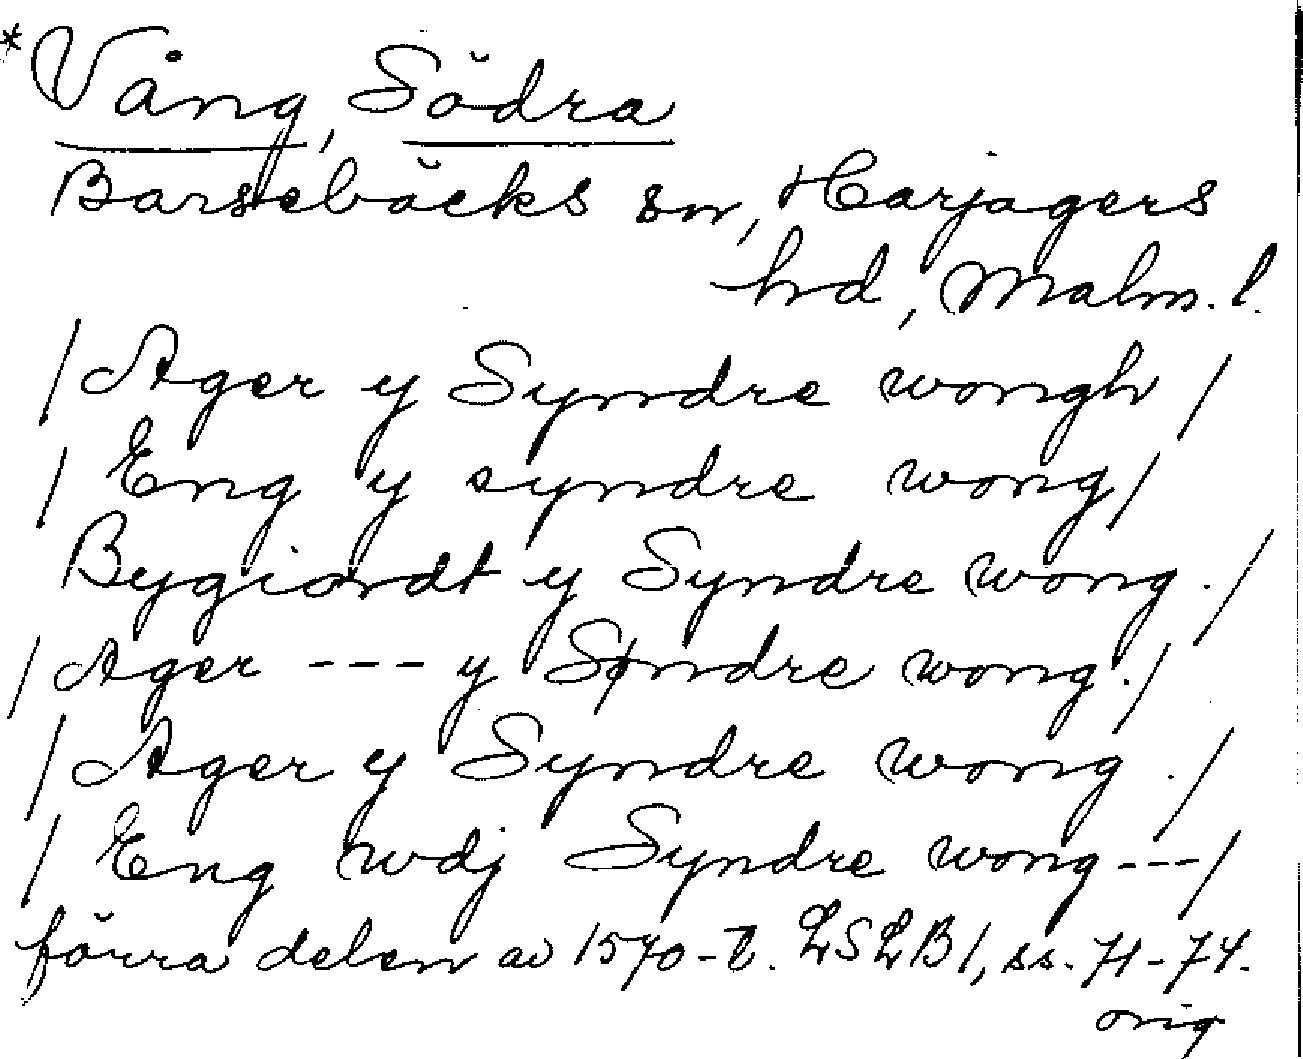 *Vång, Södra
Barsebäcks sn, Harjagers
hrd, Malm. l.
/ Ager y Syndre wongh /
/ Eng y syndre wong /
Bygiordt y Syndre wong. /
/ Ager --- y Søndre wong. /
/ Ager y Syndre wong. /
/ Eng wdj Syndre wong --- /
förra delen av 1570-t. LSLB 1, ss. 71-74.
orig